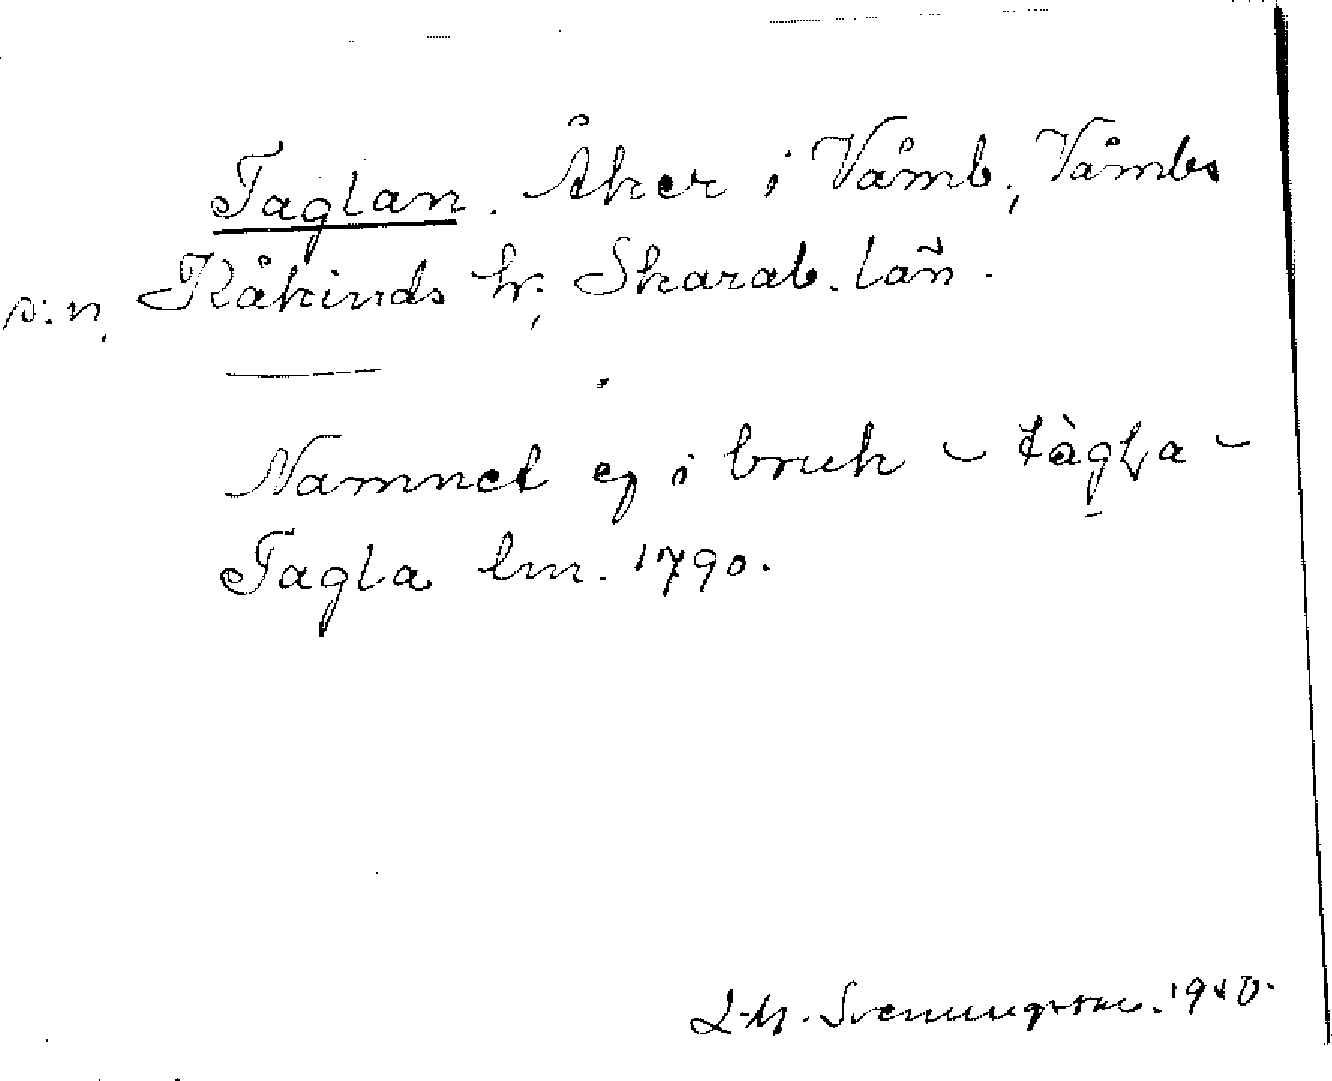 Taglan. Åker i Våmb, Våmbs
s:n, Kåkinds hr, Skarab. län.
Namnet ej i bruk ~ tàgla ~
Tagla lm. 1790.
Svenungsson. 1940.